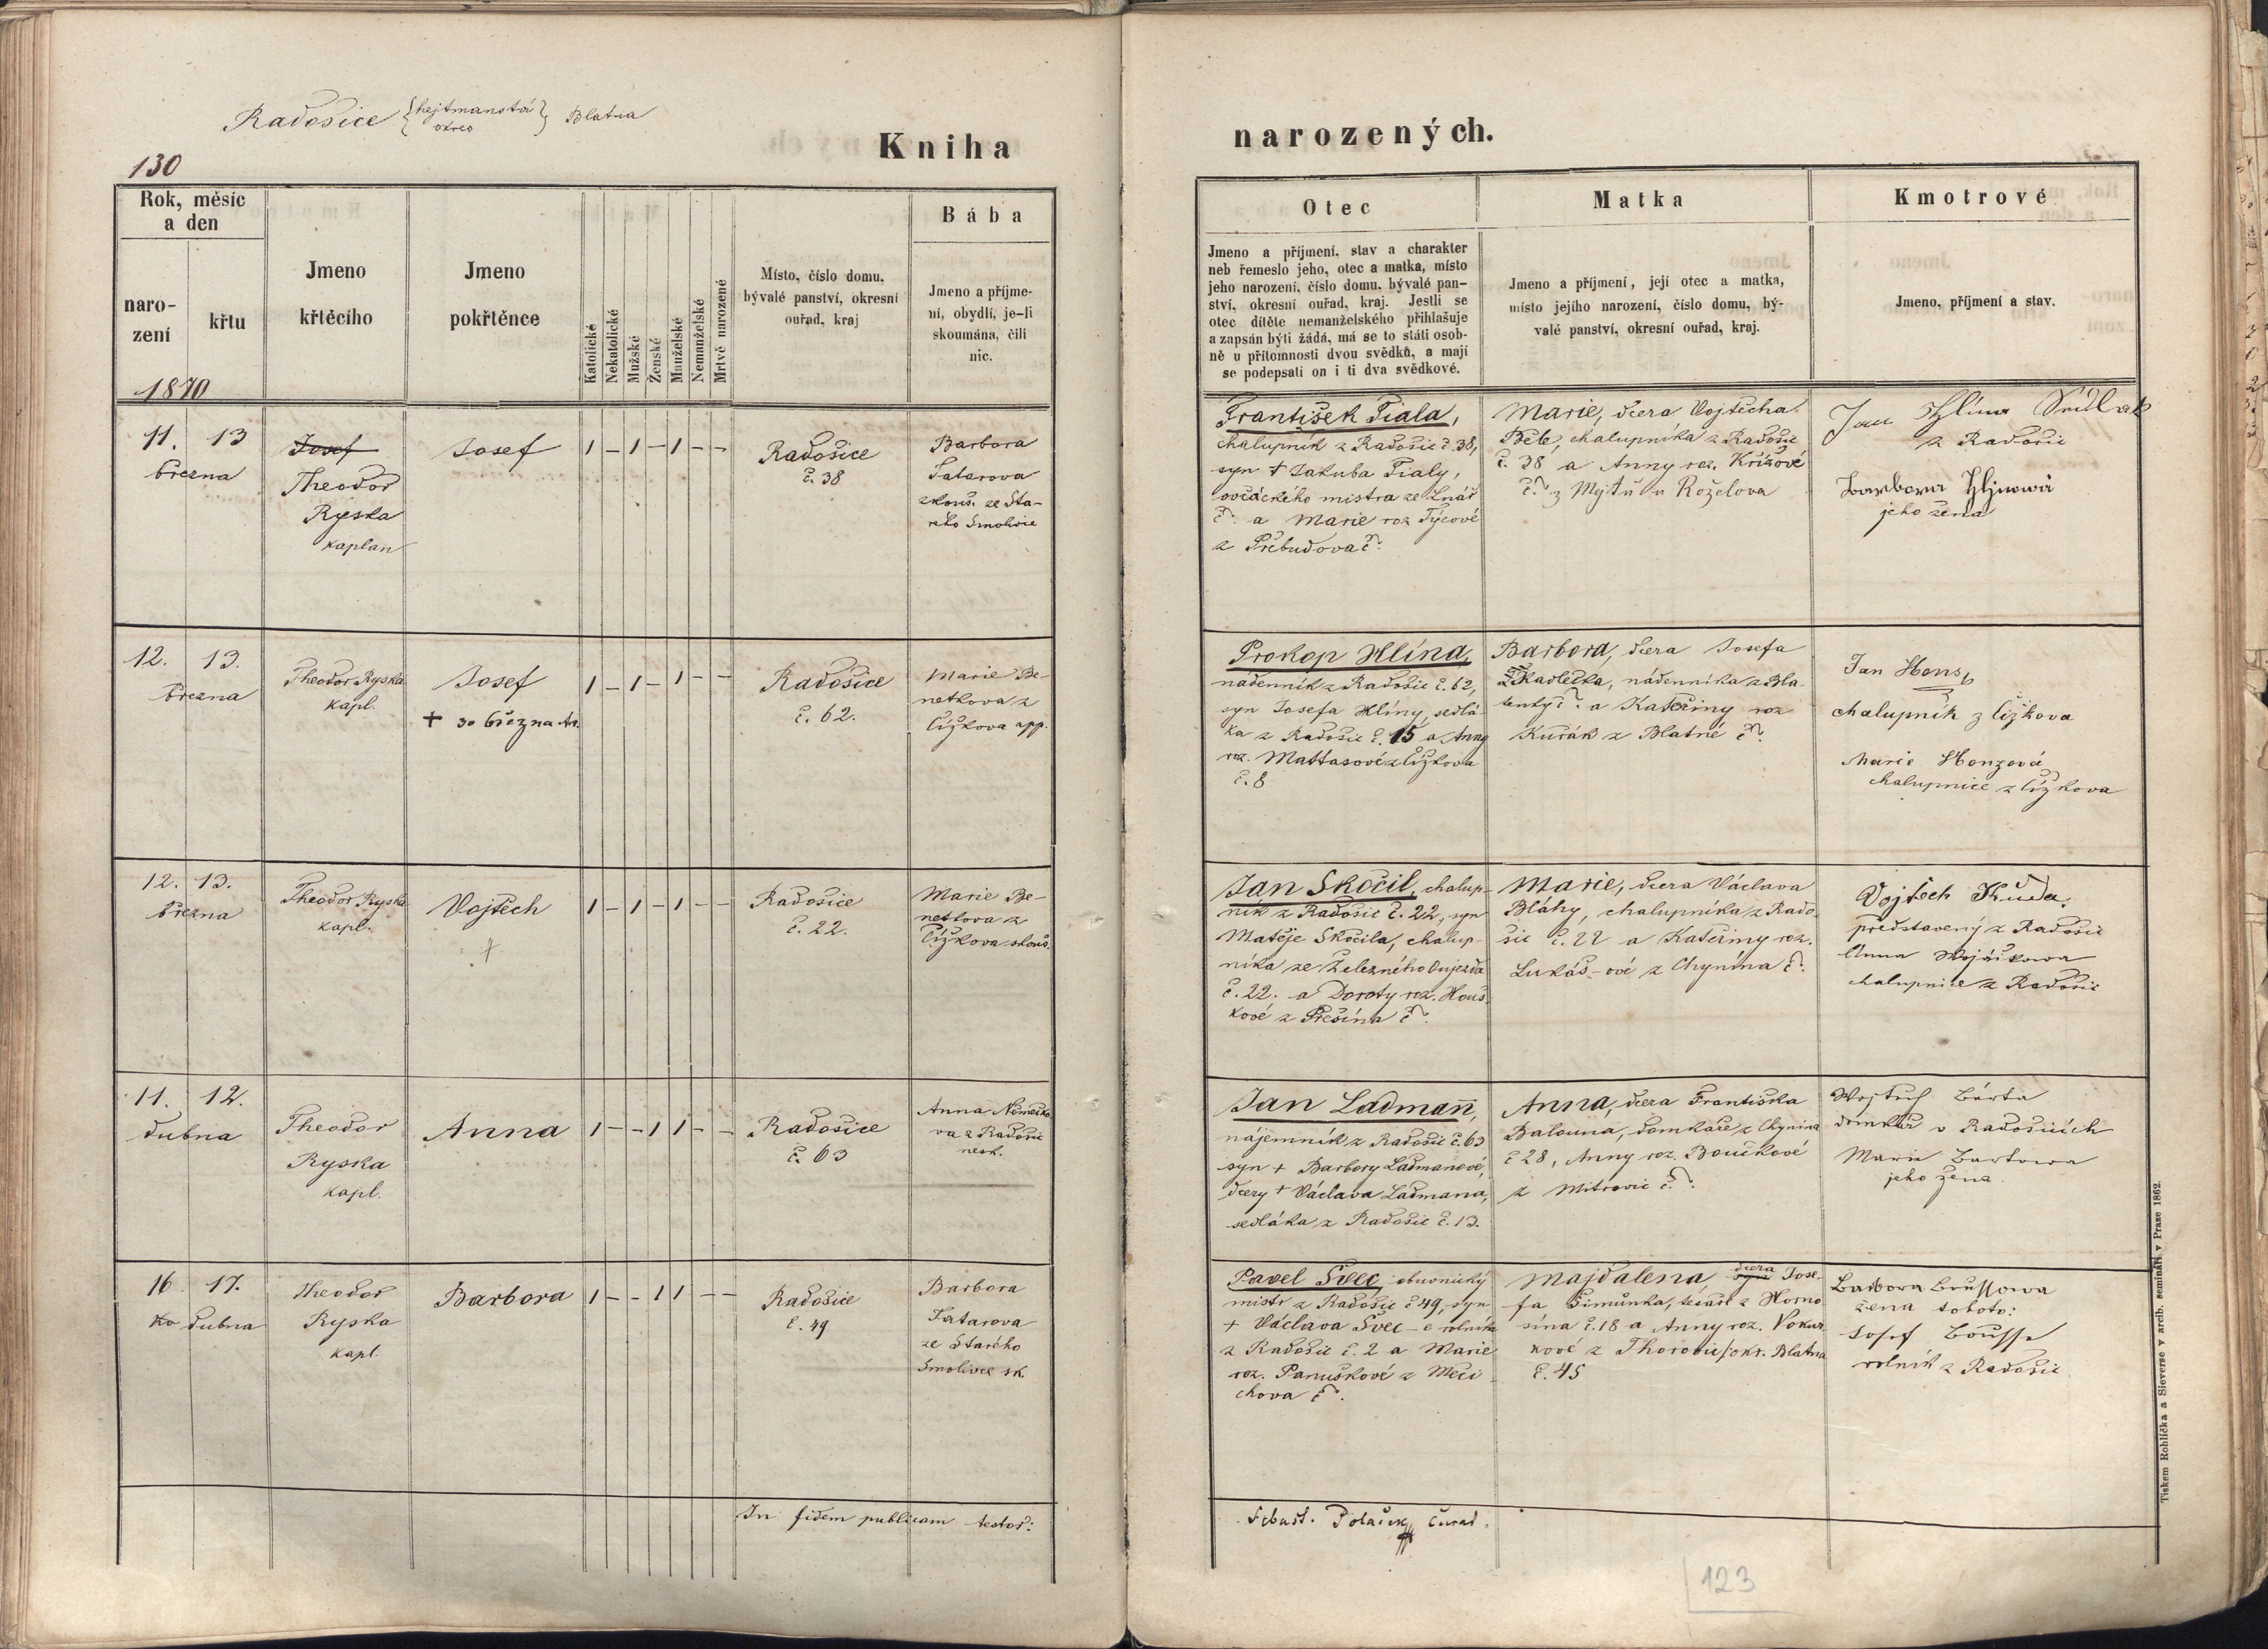 Radošice {hejtmanství
okres} Blatna
130
Kniha
Rok, měsíc
a den
naro-
zení
křtu
Jmeno
křtěcího
Jmeno
pokřtěnce
Katolické
Nekatolické
Mužské
Ženské
Manželské
Nemanželské
Mrtvě narozené
Místo, číslo domu,
bývalé panství, okresní
ouřad, kraj
Bába
Jmeno a příjme-
ní, obydlí, je-li
skoumána, čili
nic.
1870
11. 13
března
Josef
Theodor
Ryska
kaplan
Josef
1 – 1 – 1 – –
Radošice
č. 38
Barbora
Tatarova
zkouš. ze Sta-
rého Smolivce
12. 13.
března
Theodor Ryska
kapl.
Josef
+ 30 března t.r.
1 – 1 – 1 – –
Radošice
č. 62.
Marie Be-
netkova z
Čížkova app.
12. 13.
března
Theodor Ryska
kapl.
Vojtěch
+
1 – 1 – 1 – –
Radošice
č. 22.
Marie Be-
netkova z
Čížkova skouš.
11. 12.
dubna
Theodor
Ryska
kapl.
Anna
1 – – 1 1 – –
Radošice
č. 63
Anna Němečko
va z Radošic
nesk.
16 17.
ho dubna
Theodor
Ryska
kapl.
Barbora
1 – – 1 1 – –
Radošice
č. 49
Barbora
Tatarova
ze Starého
Smolivce sk.
In fidem publicam testor:
narozených.
Otec
Jmeno a příjmení, stav a charakter
neb řemeslo jeho, otec a matka, místo
jeho narození, číslo domu, bývalé pan-
ství, okresní ouřad, kraj. Jestli se
otec dítěte nemanželského přihlašuje
a zapsán býti žádá, má se to státi osob-
ně u přítomnosti dvou svědků, a mají
se podepsati on i ti dva svědkové.
Matka
Jmeno a příjmení, její otec a matka,
místo jejího narození, číslo domu, bý-
valé panství, okresní ouřad, kraj.
Kmotrové
Jmeno, příjmení a stav.
František Fiala,
chalupník z Radošic č. 38,
syn + Jakuba Fialy,
ovčáckého mistra ze Lnář
č? a Marie roz Týcové
z Přebudova č?
Marie, dcera Vojtěcha
Běle, chalupníka z Radošic
č. 38 a Anny roz. Křížové
č? z Mejtů u Roželova
Jan Hlína Sedlák
z Radošic
Barbora Hlinowá
jeho žena
Prokop Hlína,
nádenník z Radošic č. 62,
syn Josefa Hlíny, sedlá-
ka z Radošic č. 15 a Anny
roz. Mattasové z Čížkova
č. 8
Barbora, dcera Josefa
Kadlečka, nádenníka z Bla-
tenky č? a Kateřiny roz
Kuřák z Blatné č?
Jan Hons,
chalupník z Čížkova
Marie Honzová
chalupnice z Čížkova
Jan Skočil, chalup-
ník z Radošic č. 22, syn
Matěje Skočila, chalup-
níka ze Železného Oujezda
č. 22. a Doroty roz. Houš-
kové z Přešína č?
Marie, dcera Václava
Bláhy, chalupníka z Rado-
šic č. 22 a Kateřiny roz.
Lukáš-ové z Chynína č?
Vojtěch Kůda,
představený z Radošic
Anna
chalupnice z Radošic
Jan Ladmann,
nájemník z Radošic č. 63
syn + Barbory Ladmanové,
dcery + Václava Ladmana,
sedláka z Radošic č. 13.
Anna, dcera Františka
Balouna, domkáře z Chynína
č 28, Anny roz. Boučkové
z Mitrovic č?
Wojtěch Bárta
domkář v Radošicích
Marie Bartowa
jeho žena.
Pavel Švec, obuvnický
mistr z Radošic č 49, syn
+ Václava Švec-e rolníka
z Radošic č. 2 a Marie
roz. Panuškové z Měči-
chova č?
Majdalena dcera Jose-
fa Šimůnka, tesaře z Horno-
sína č. 18 a Anny roz. Vokur-
kové z Thorovic/okr. Blatna
č. 45
Barbora Brůssowa
žena tohoto:
Josef Brousse
rolník z Radošic
Sebast. Polaček Curat.
123
Tiskem Rohlíčka a Sieverse v arcib. semináři v Praze 1862.